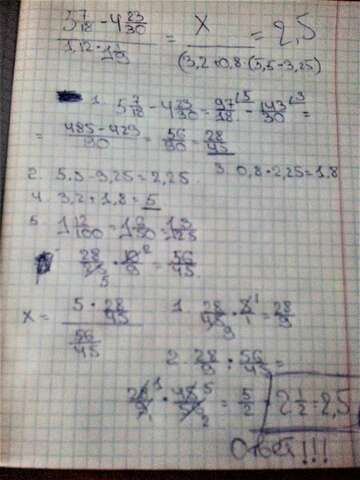 5 7/18 - 4 23/30 / 1,12 · 1 1/9 = x / (3,2 + 0,8 · (5,5 - 3,25) = 2,5
1. 5 7/18 - 4 23/30 = 97/18 - 143/30 =
= 485 - 429 / 90 = 56/90 = 28/45
2. 5,5 - 3,25 = 2,25
3. 0,8 · 2,25 = 1,8
4. 3,2 + 1,8 = 5
5. 1 12/100 = 1 6/50 = 1 3/25
28/25 · 10/9 = 56/45
x = 5 · 28/45 / 56/45
1. 28/45 · 5/1 = 28/9
2. 28/9 : 56/45 =
28/9 · 45/56 = 5/2 = 2 1/2 = 2,5
Ответ!!!